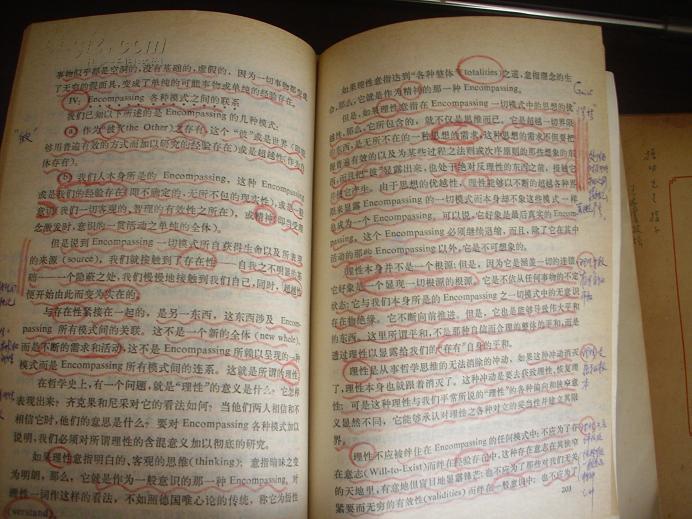 事物似乎都是空洞的,没有基础的,虚假的,因为一切事物都变成
了无穷的假面具,变成了单纯的可能事物或单纯的经验存在。
IV. Encompassing 各种模式之间的联系
我们已如以下所述的是 Encompassing 的几种模式:
(a) 作为“彼”(the Other)之存有,这个“彼”或是世界(即能
够用普遍有效的方式而加以研究的经验存在)或是超越性(作为自
体存有)。
(b) 我们人本身所是的 Encompassing,这种 Encompassing
或是我们的经验存在(即不确定的,无所不包的现实性),或是一般
意识(我们一切客观的、智理的有效性之所在),或精神(即当受理
念激发时,意识的一贯活动之单纯的全体)。
但是说到 Encompassing 一切模式所自获得生命以及所表现
的来源(source),我们就接触到了存在性——自我之不明显的基
础——一个隐蔽之处,我们慢慢地接触到我们自己,同时,超越性
便开始由此而变为实在的。
与存在性紧接在一起的,是另一东西,这东西涉及 Encom-
passing 所有模式间的关联。这不是一个新的全体(new whole),
而是不断的需求和活动,这不是 Encompassing 所赖以呈现的一种
模式而是 Encompassing 所有模式间的连系。这就是所谓的理性
在哲学史上,有一个问题,就是“理性”的意义是什么?它怎样
表现出来?齐克果和尼采对它的看法如何?当他们两人相信和不
相信它时,他们的意思是什么?要对 Encompassing 各种模式加以
说明,我们必须对所谓理性的含混意义加以彻底的研究。
如果理性意指明白的、客观的思维(thinking);意指暗昧之变
为明朗,那么,它就是作为一般意识的那一种 Encompassing,对
理性一词作这样的看法,不如照德国唯心论的传统,称它为悟性
(verstand)
如果理性意指达到“各种整体”(totalities)之道,意指理念的生
命,那么,它就是作为精神的那一种 Encompassing。
但是,如果理性意指在 Encompassing 一切模式中的思想的优
越性,那么,它所包含的,就不仅是思维而已。它是超越一切界限
的东西,是无所不在的一种思想的需求,这种思想的需求不但要把
握普遍有效的以及为某些过程之法则或次序原则的那些想象的东
西,而且把“彼”显露出来,也处于绝对反理性的东西之前,接触它
并使它产生。由于思想的优越性,理性能够以不断的超越各种界
限来显露 Encompassing 的一切模式而本身却不象这些模式一样
是成为一个 Encompassing。可以说,它好象是最后真实的 Encom-
passing。这个 Encompassing 必须继续退缩,而且,除了在其中
活动的那些 Encompassing 以外,它是不可想象的。
理性本身并不是一个根源;但是,因为它是无所不包的连锁,
它好象是一个显现一切根源的根源。它是不依从任何事物的不定
状态;它与我们本身所是的 Encompassing 之一切模式中的无意识
存在物绝缘。它不断向前推进。但是,它也是能够导致伟大平和
的东西。这里所谓平和,不是那种自信而合理的整体的平和,而是
透过理性以显露给我们的“存有”自身的平和。
理性是从事哲学思维的无法消除的冲动,如果这种冲动消灭
了,理性本身也就跟着消灭了。这种冲动是要去获致理性,恢复理
性;可是这种理性与我们平常所说的“理性”的各种偏向和狭窄意
义显然不同,它能够承认对理性之各种对立的妥当性并建立其限
界。
理性不应被绊住在 Encompassing 的任何模式中:不应为了存
在意志(Will-to-Exist)而绊在经验存在中,这种存在意志在其狭窄
的天地里,有意地但盲目地暴露锋芒;也不应为了那些对我们无关
紧要而无穷的有效性(validities)而绊在一般意识中;也不应为了
203
“彼”